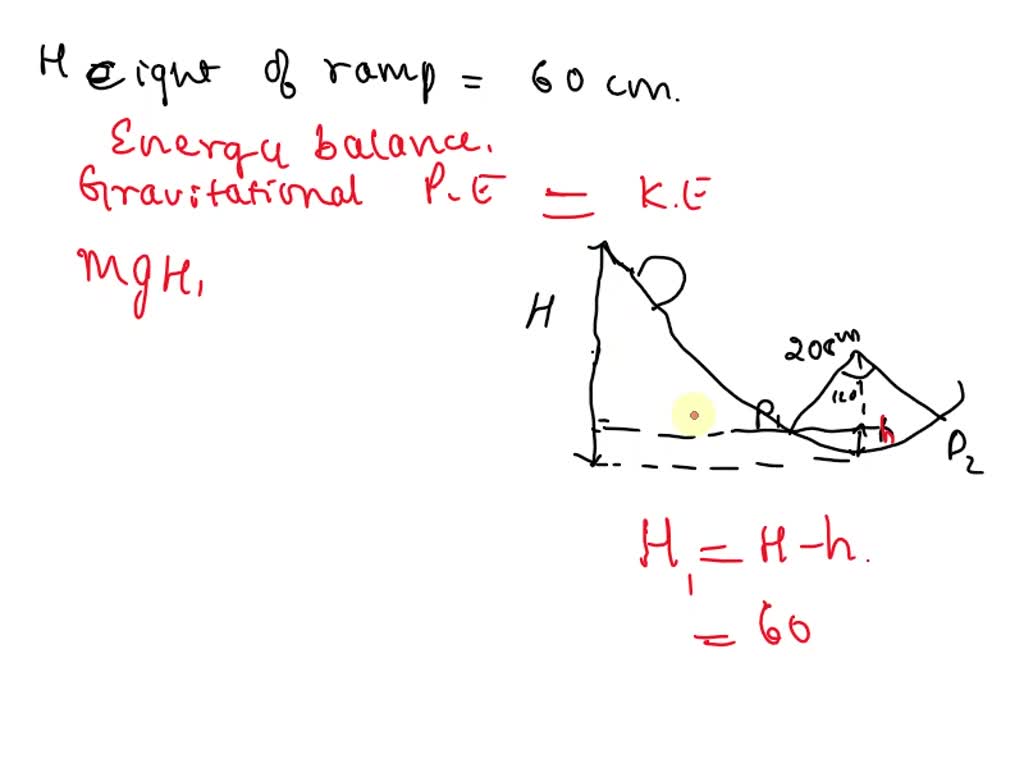 Height of ramp = 60 cm.
Energy balance.
Gravitational P.E = K.E
MgH₁
H
20cm
120°
P₁
h
P₂
H₁ = H-h.
= 60